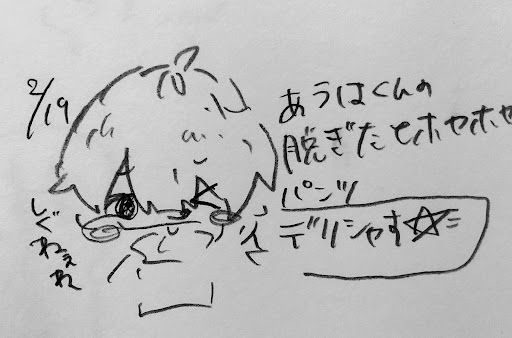 2/19
あうはくんの
脱ぎたてホヤホヤ
パンツ
デリシャす☆=
しぐ
ねぇ
ね